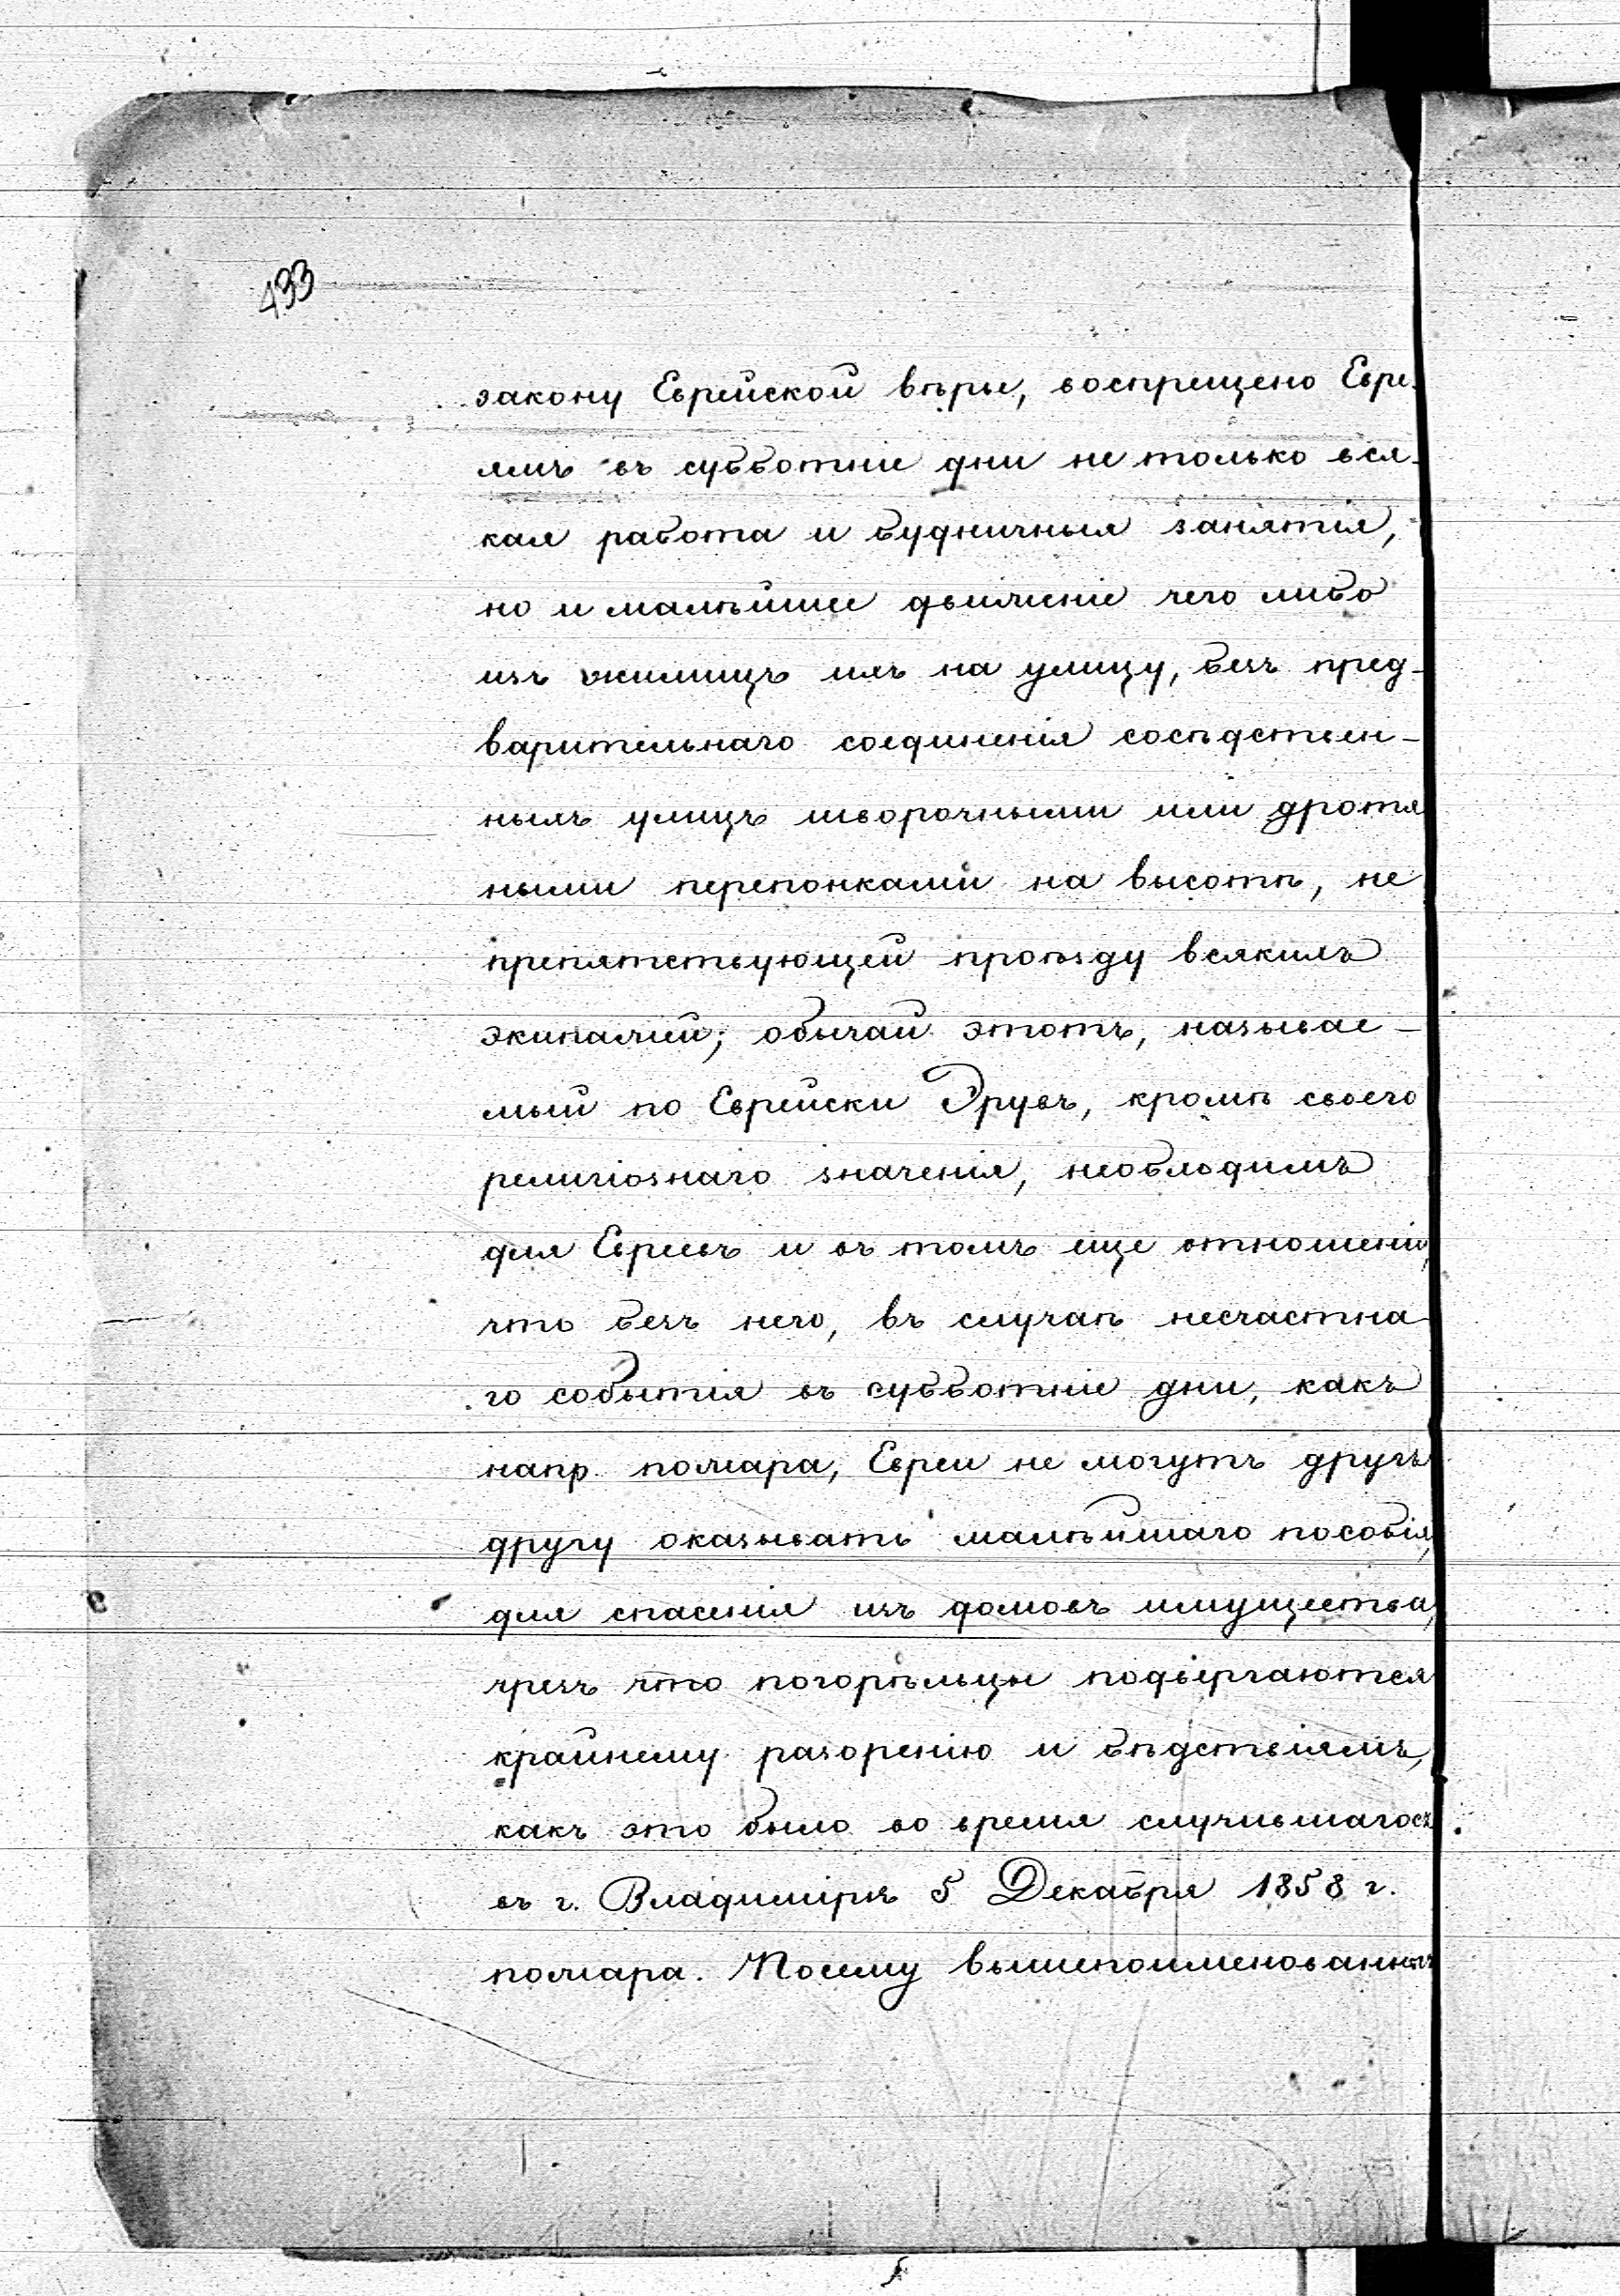 433
закону Еврейской вѣры, воспрещено Евре-
ямъ въ субботніе дни не только вся-
кая работа и будничныя занятія,
но и малѣйшее движеніе чего либо
изъ жилищъ ихъ на улицу, безъ пред-
варительнаго соединенія сосѣдствен-
ныхъ улицъ шворочными или дротя
ными перепонками на высотѣ, не
препятствующей проѣзду всякихъ
экипажей; обычай этотъ, называе-
мый по Еврейски Эрувъ, кромѣ своего
религіознаго значенія, необходимъ
для Евреевъ и въ томъ еще отношеніи,
что безъ него, въ случаѣ несчастна-
го событія въ субботніе дни, какъ
напр. пожара, Евреи не могутъ другъ
другу оказывать малѣйшаго пособія,
для спасенія изъ домовъ имущества,
чрезъ что погорѣльцы подвергаются
крайнему разоренію и бѣдствіямъ,
какъ это было во время случившагося
въ г. Владимірѣ 5 Декабря 1858 г.
пожара. Посему вышепоименованныхъ